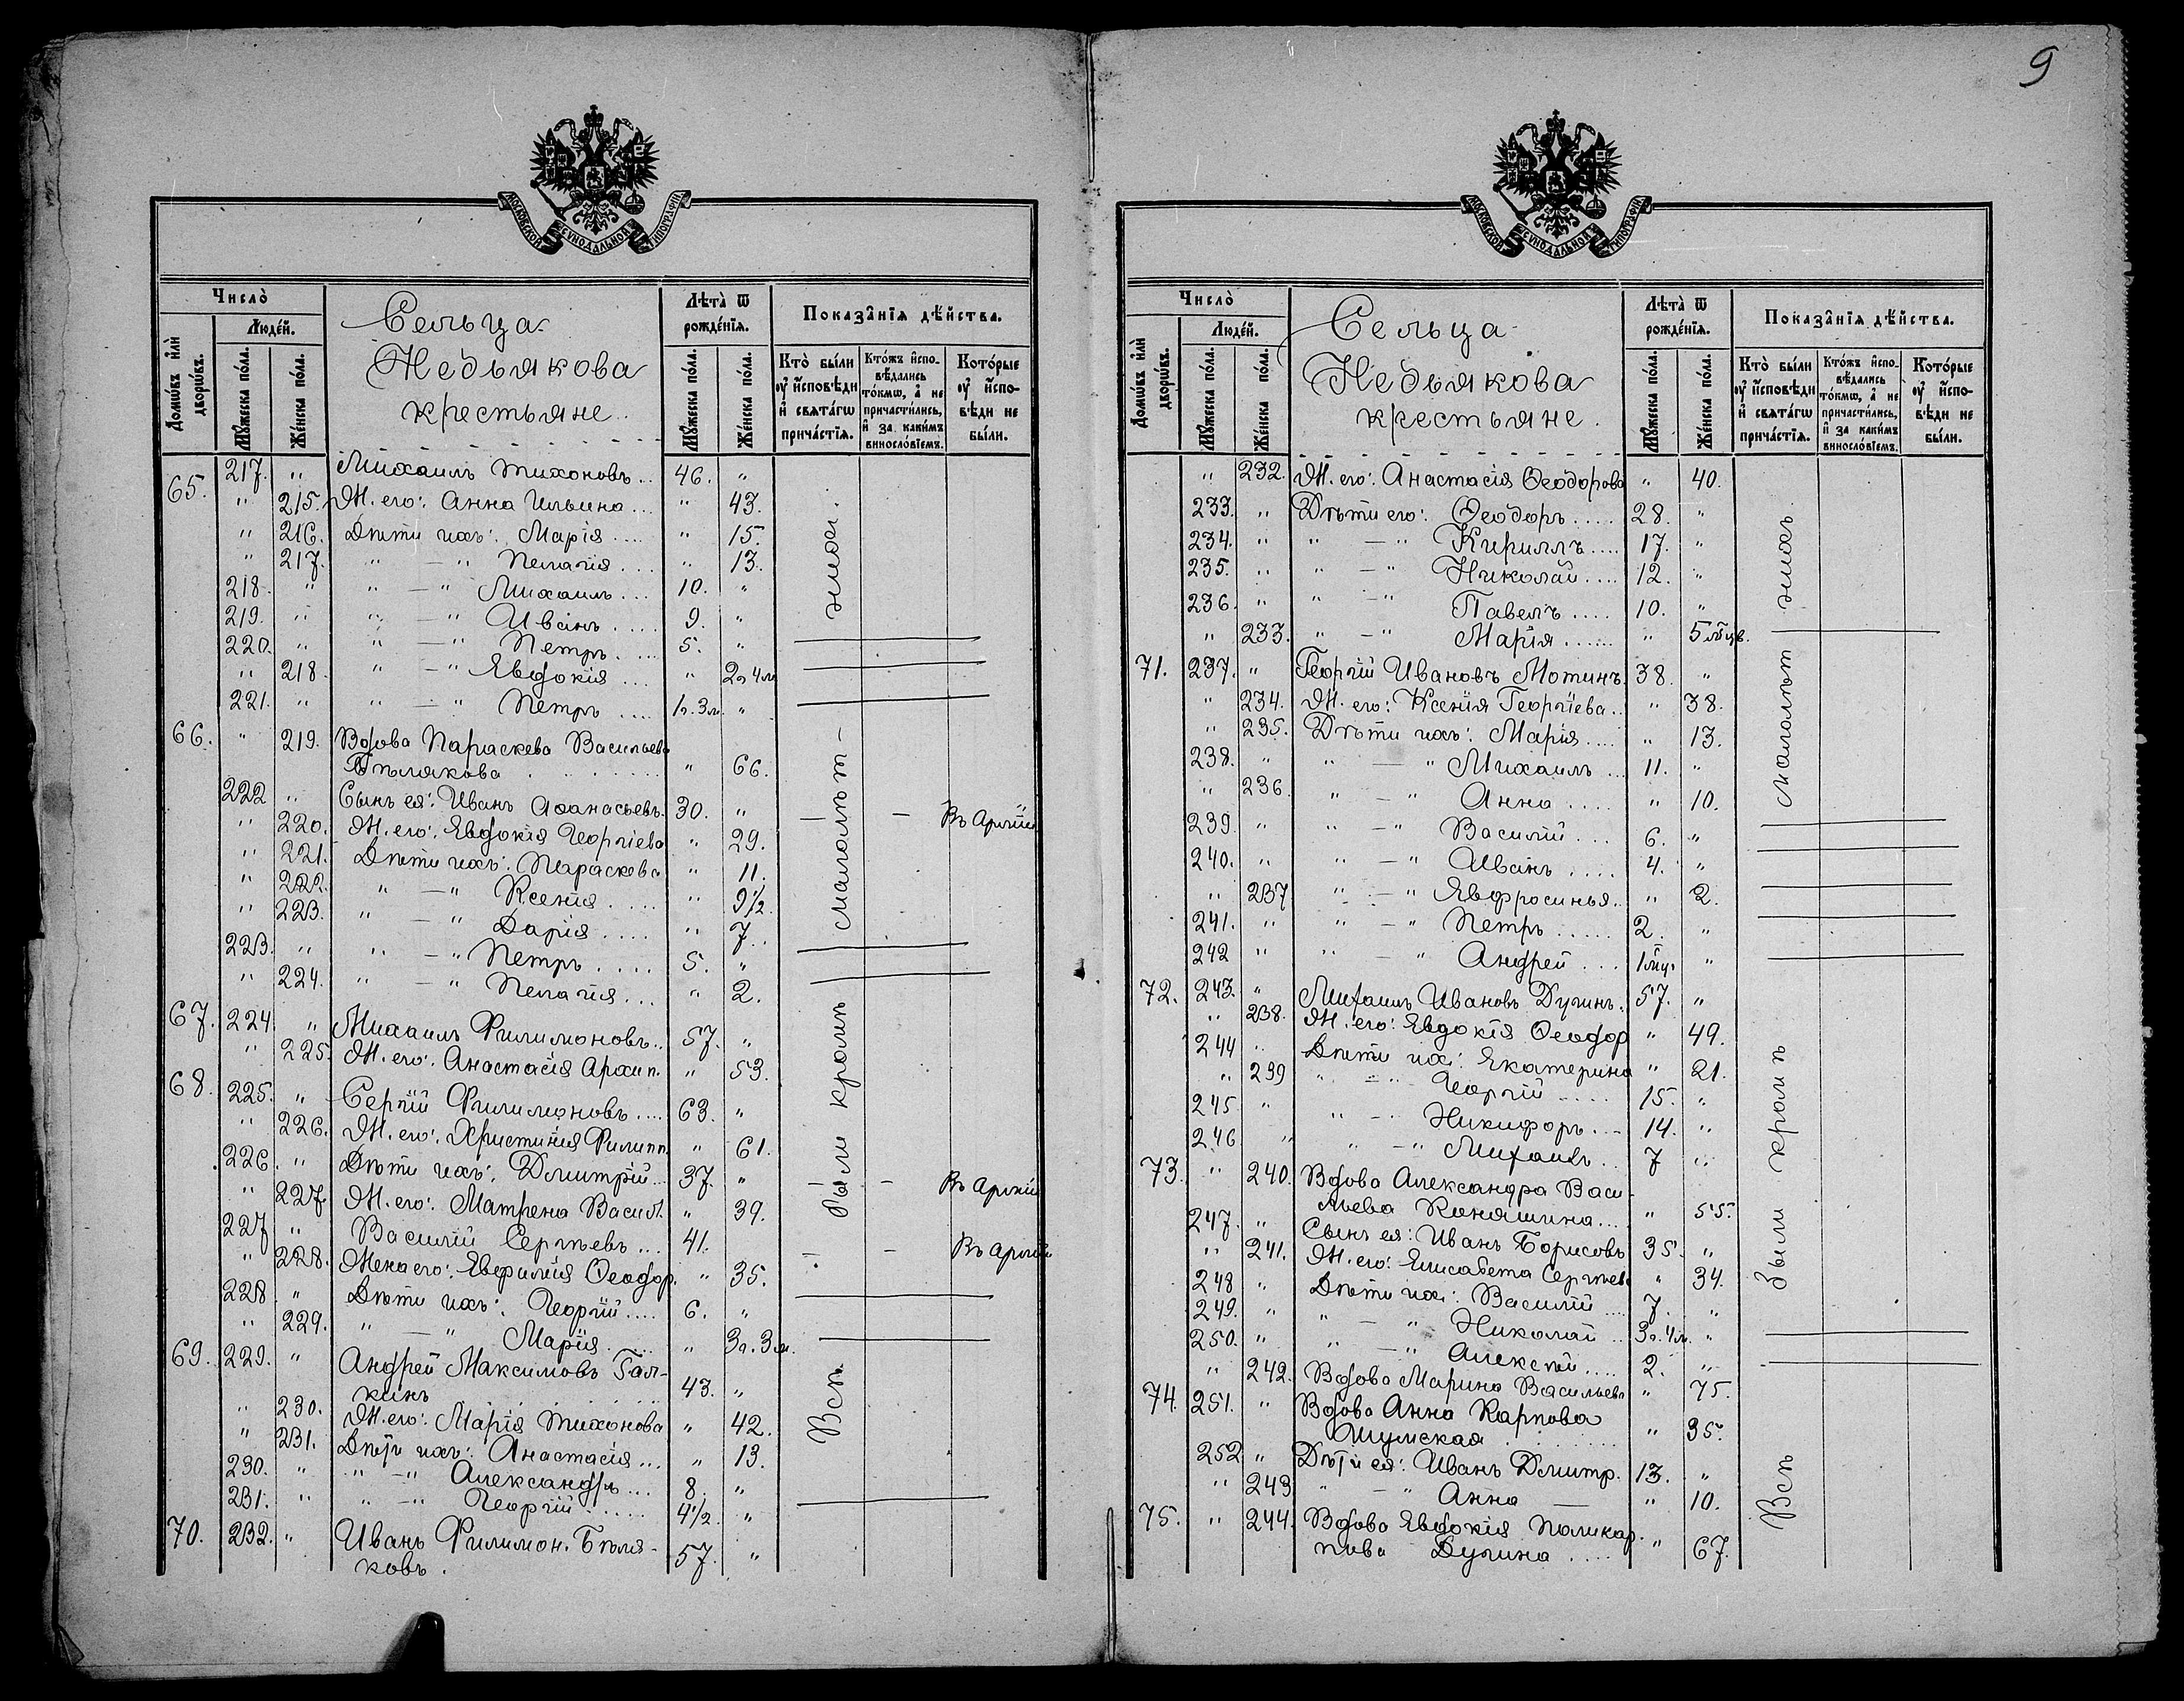 9
МОСКОВСКОЙ СѴНОДАЛЬНОЙ ТИПОГРАФІИ.
Число̀
Домѡ́въ и҆лѝ дворѡ́въ.
Люде́й.
Мꙋ́жеска по́ла.
Же́нска по́ла.
Сельца
Недьякова
крестьяне.
Лѣ́та ѿ рожде́нїѧ.
Мꙋ́жеска по́ла.
Же́нска по́ла.
Показа́нїѧ дѣ́йства.
Кто̀ бы́ли ᲂу҆ и҆сповѣди и҆ свѧта́гѡ прича́стїѧ.
Кто́жъ и҆сповѣдались то́кмѡ, а҆ не причасти́лись, и҆ за каки́мъ винослóвїемъ.
Кото́рые ᲂу҆ и҆сповѣди не бы́ли.
65. 217. " Михаилъ Тихоновъ.. 46. "
" 215. Ж. его: Анна Ильина... " 43.
" 216. Дѣти ихъ: Марія.... " 15.
" 217. " — " Пелагія... " 13.
218. " " — " Михаилъ... 10. "
219. " " — " Иванъ.... 9. "
220. " " — " Петръ.... 5. "
" 218. " — " Евдокія... " 2г 4м
221. " " — " Петръ.... 1г. 3м. "
66. " 219. Вдова Параскева Васильева
Бѣлякова....... " 66.
222 " Сынъ ея: Иванъ Аѳанасьевъ. 30. " — — Въ Арміи
" 220. Ж. его: Евдокія Георгіева " 29.
" 221. Дѣти ихъ: Параскева " 11.
" 222. " — " Ксенія.... " 9 1/2.
" 223. " — " Дарія.... " 7..
223. " " — " Петръ.... 5. "
" 224. " — " Пелагія... " 2.
67. 224. " Михаилъ Филимоновъ.. 57. "
" 225. Ж. его: Анастасія Архип. " 53.
68. 225. " Сергій Филимоновъ.... 63. "
" 226. Ж. его: Христинія Филипп. " 61.
226. " Дѣти ихъ: Димитрій... 37. " — Въ Арміи
" 227. Ж. его: Матрена Васил. " 39.
227 " Василій Сергѣевъ... 41. " — — Въ арміи
" 228. Жена его: Евфимія Ѳеодор. " 35.
228. " Дѣти ихъ: Георгій.... 6. "
" 229. " — " Марія.... " 3г. 3м.
69. 229. " Андрей Максимовъ Гал-
кинъ........ 43. "
" 230. Ж. его: Марія Тихонова " 42.
" 231. Дѣти ихъ: Анастасія... " 13.
230. " " — " Александръ... 8. "
231. " " — " Георгій..... 4 1/2. "
70. 232. " Иванъ Филимон. Бѣля-
ковъ. 57. "
Всѣ были кромѣ малолѣт-нихъ.
МОСКОВСКОЙ СѴНОДАЛЬНОЙ ТИПОГРАФІИ.
Число̀
Домѡ́въ и҆лѝ дворѡ́въ.
Люде́й.
Мꙋ́жеска по́ла.
Же́нска по́ла.
Сельца
Недьякова
крестьяне.
Лѣ́та ѿ рожде́нїѧ.
Мꙋ́жеска по́ла.
Же́нска по́ла.
Показа́нїѧ дѣ́йства.
Кто̀ бы́ли ᲂу҆ и҆сповѣди и҆ свѧта́гѡ прича́стїѧ.
Кто́жъ и҆сповѣдались то́кмѡ, а҆ не причасти́лись, и҆ за каки́мъ винослóвїемъ.
Кото́рые ᲂу҆ и҆сповѣди не бы́ли.
" 232. Ж. его: Анастасія Ѳеодорова " 40.
233. " Дѣти его: Ѳеодоръ..... 28. "
234. " " — " Кириллъ.... 17. "
235. " " — " Николай.... 12. "
236. " " — " Павелъ.... 10. "
" 233. " — " Марія...... " 5
71. 237. " Георгій Ивановъ Мотинъ. 38. "
" 234. Ж. его: Ксенія Георгіева.. " 38.
" 235. Дѣти ихъ: Марія.... " 13.
238. " " — " Михаилъ... 11. "
" 236. " — " Анна.... " 10.
239. " " — " Василій.... 6. "
240. " " — " Иванъ.... 4. "
" 237 " — " Евфросинья.. " 2.
241. " " — " Петръ...... 2. "
242 " " — " Андрей... 1 "
72. 243. " Михаилъ Ивановъ Дугинъ. 57. "
" 238. Ж. его: Евдокія Ѳеодор " 49.
244 " Дѣти их: Екатерина " 21.
" 239 " — " Георгій.... 15. "
245 " " — " Никифоръ... 14. "
246 " " — " Михаилъ.. 7 "
73. " 240. Вдова Александра Васи-
льева Коняшина.... " 55.
247. " Сынъ ея: Иванъ Борисовъ 35. "
" 241. Ж. его: Елисавета Сергѣев. " 34.
248 " Дѣти их: Василій.... 7. "
249. " " — " Николай.. 3г. 4м. "
250. " " — " Алексѣй.... 2. "
" 242. Вдова Марина Васильева " 75.
74. 251. " Вдова Анна Карпова
Шумская........ " 35.
252 " Дѣти ея: Иванъ Димитр. 13. "
" 243 " — " Анна — " 10.
75. " 244. Вдова Евдокія Поликар-
пова Дугина.... " 67.
Всѣ были кромѣ малолѣтнихъ